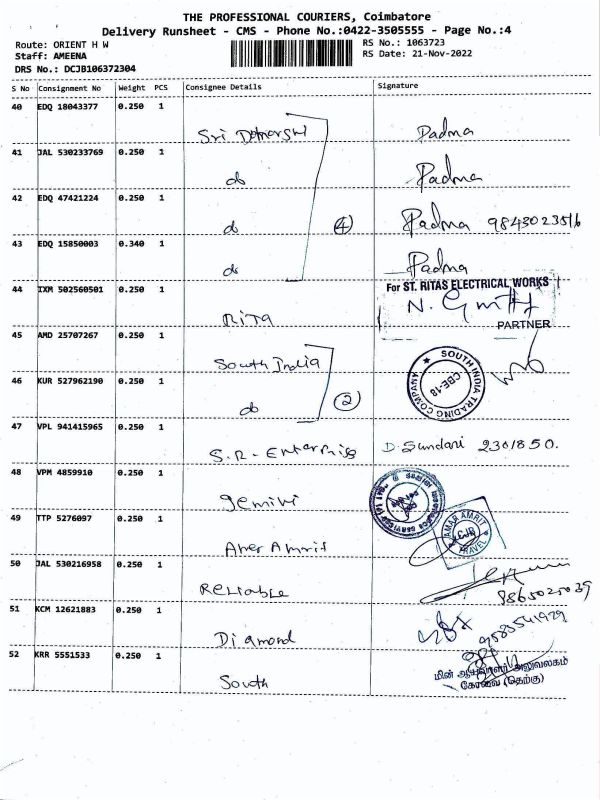 THE PROFESSIONAL COURIERS, Coimbatore
Delivery Runsheet - CMS - Phone No.:0422-3505555 - Page No.:4
Route: ORIENT H W
RS No.: 1063723
Staff: AMEENA
RS Date: 21-Nov-2022
DRS No.: DCJB106372304
S No Consignment No Weight PCS Consignee Details Signature
40 EDQ 18043377 0.250 1
Sri Padma
41 JAL 530233769 0.250 1
do Padma
42 EDQ 47421224 0.250 1
do 4 Padma 9843023516
43 EDQ 15850003 0.340 1
do Padma
44 IXM 502560501 0.250 1
For ST. RITAS ELECTRICAL WORKS
Rita
PARTNER
45 AMD 25707267 0.250 1
South India
SOUTH INDIA TRADING COMPANY
CBE-18
46 KUR 527962190 0.250 1
do 2
47 VPL 941415965 0.250 1
S.R. Enterprise D. Sundari 2301850.
48 VPM 4859910 0.250 1
gemini
49 TTP 5276097 0.250 1
AMAR AMRIT
CJB
TRAVEL
Amer Amrit
50 JAL 530216958 0.250 1
Reliable
9865025039
51 KCM 12621883 0.250 1
Diamond
52 KRR 5551533 0.250 1
South
மின் ஆய்வாளர் அலுவலகம்
கோவை (தெற்கு)